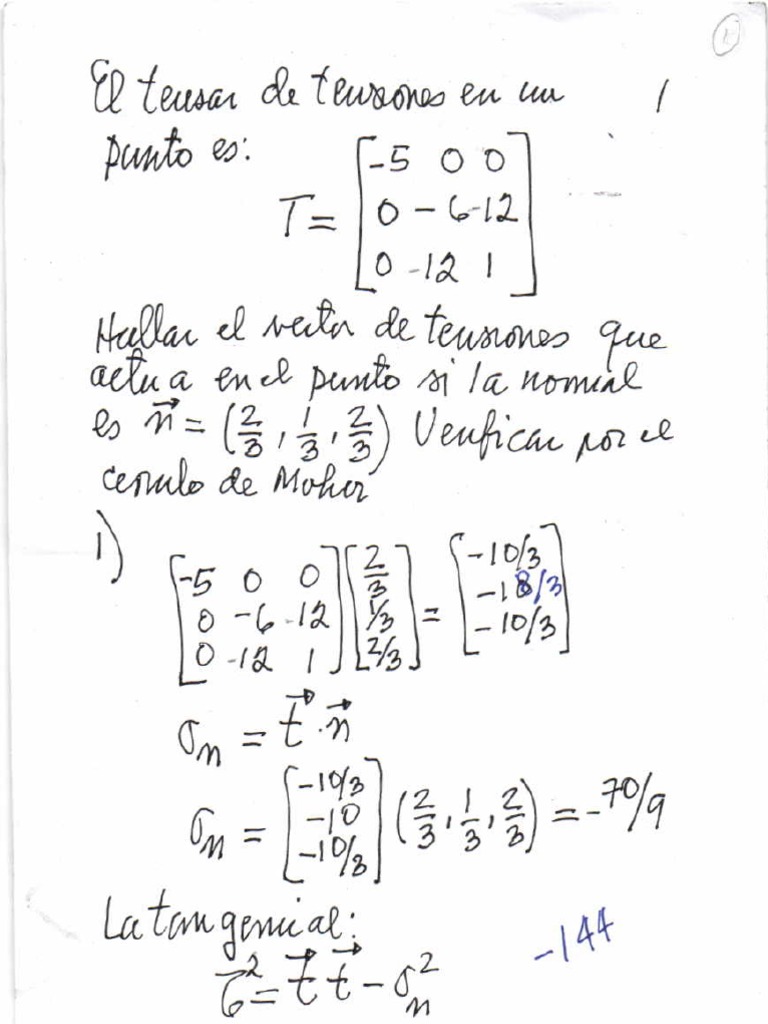 1
El tensor de tensiones en un 1
punto es:
T = [-5 0 0
0 -6 -12
0 -12 1]
Hallar el vector de tensiones que
actua en el punto si la normal
es n⃗ = (2/3, 1/3, 2/3) Verificar por el
circulo de Mohor
1)
[-5 0 0
0 -6 -12
0 -12 1] [2/3
1/3
2/3] = [-10/3
-18/3
-10/3]
σn = t⃗ · n⃗
σn = [-10/3
-10
-10/3] (2/3, 1/3, 2/3) = -70/9
La tangencial:
-144
τ² = t⃗ t⃗ - σn²